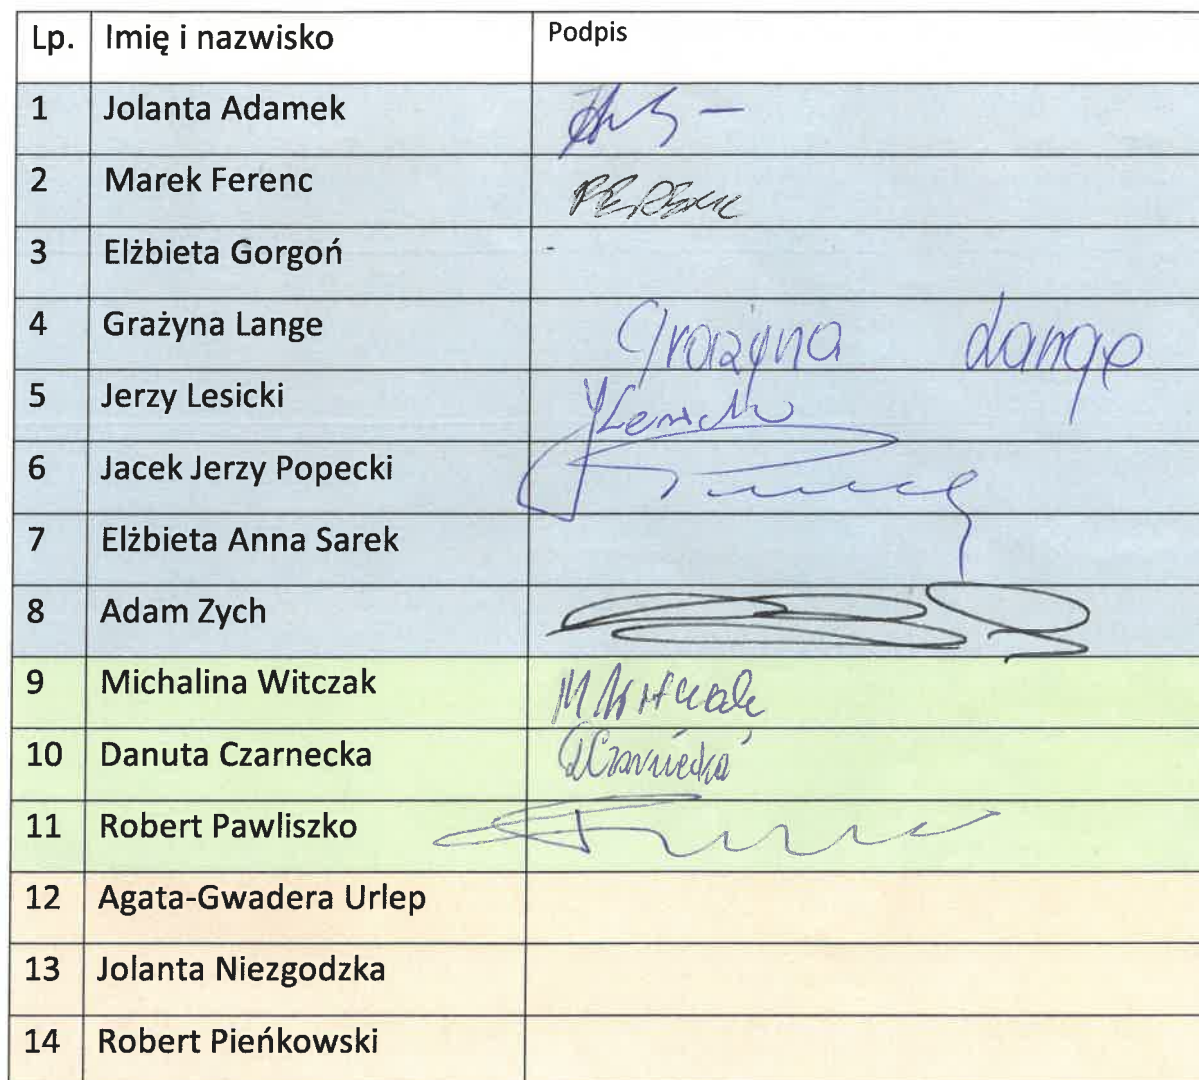 Lp. Imię i nazwisko Podpis
1 Jolanta Adamek
2 Marek Ferenc
3 Elżbieta Gorgoń -
4 Grażyna Lange Grażyna Lange
5 Jerzy Lesicki JLesicki
6 Jacek Jerzy Popecki
7 Elżbieta Anna Sarek
8 Adam Zych
9 Michalina Witczak M Witczak
10 Danuta Czarnecka DCzarnecka
11 Robert Pawliszko
12 Agata-Gwadera Urlep
13 Jolanta Niezgodzka
14 Robert Pieńkowski